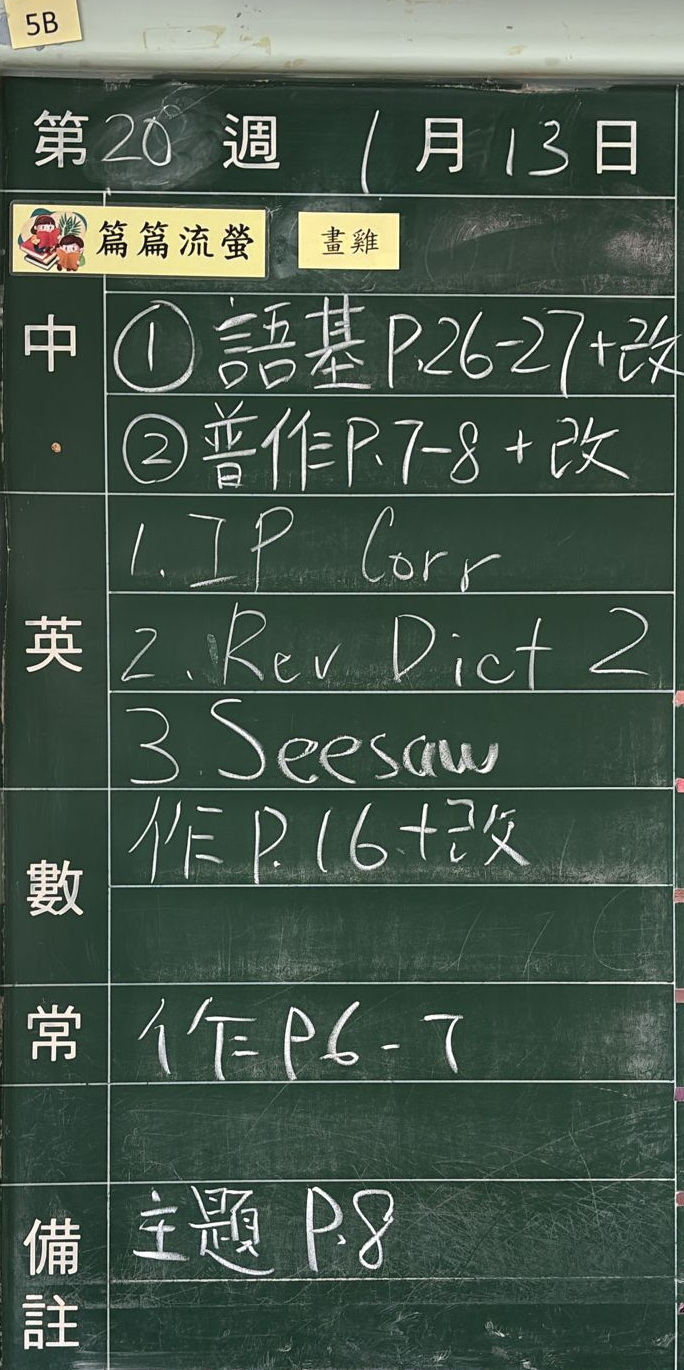 5B
第20週 1月13日
篇篇流螢 畫雞
中
① 語基P.26-27+改
② 普作P.7-8+改
英
1. IP Corr
2. Rev Dict 2
3. Seesaw
數
作P.16+改
常
作P6-7
備註
主題 P.8